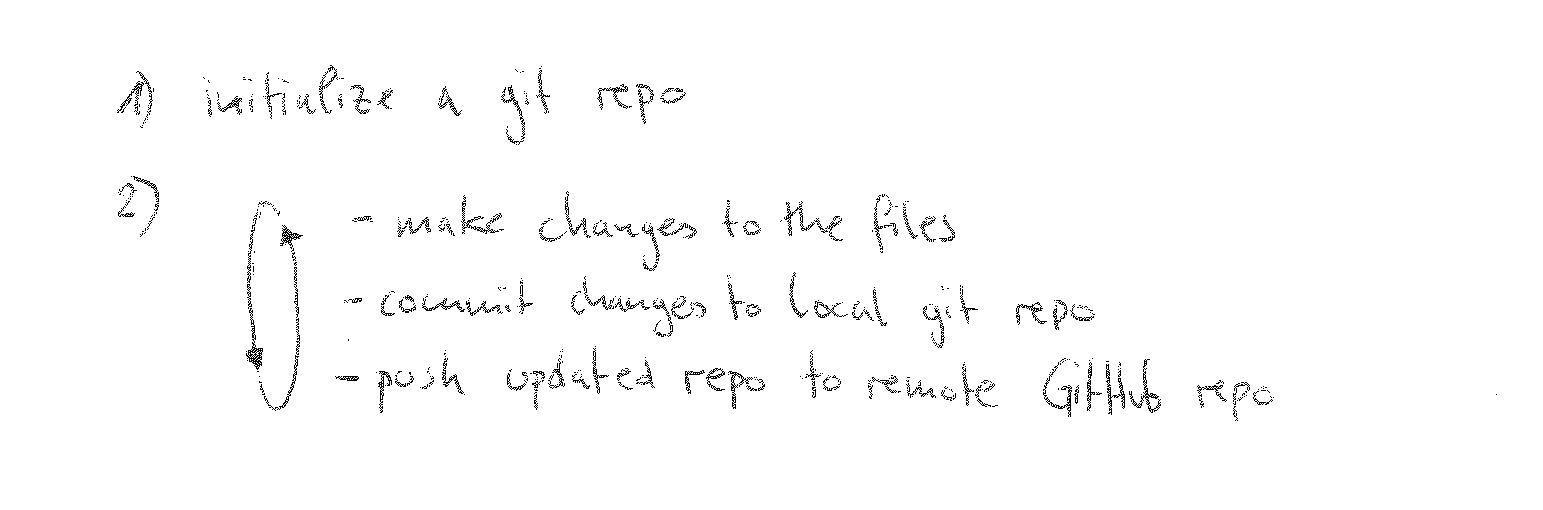 1) initialize a git repo
2)
- make changes to the files
- commit changes to local git repo
- push updated repo to remote GitHub repo